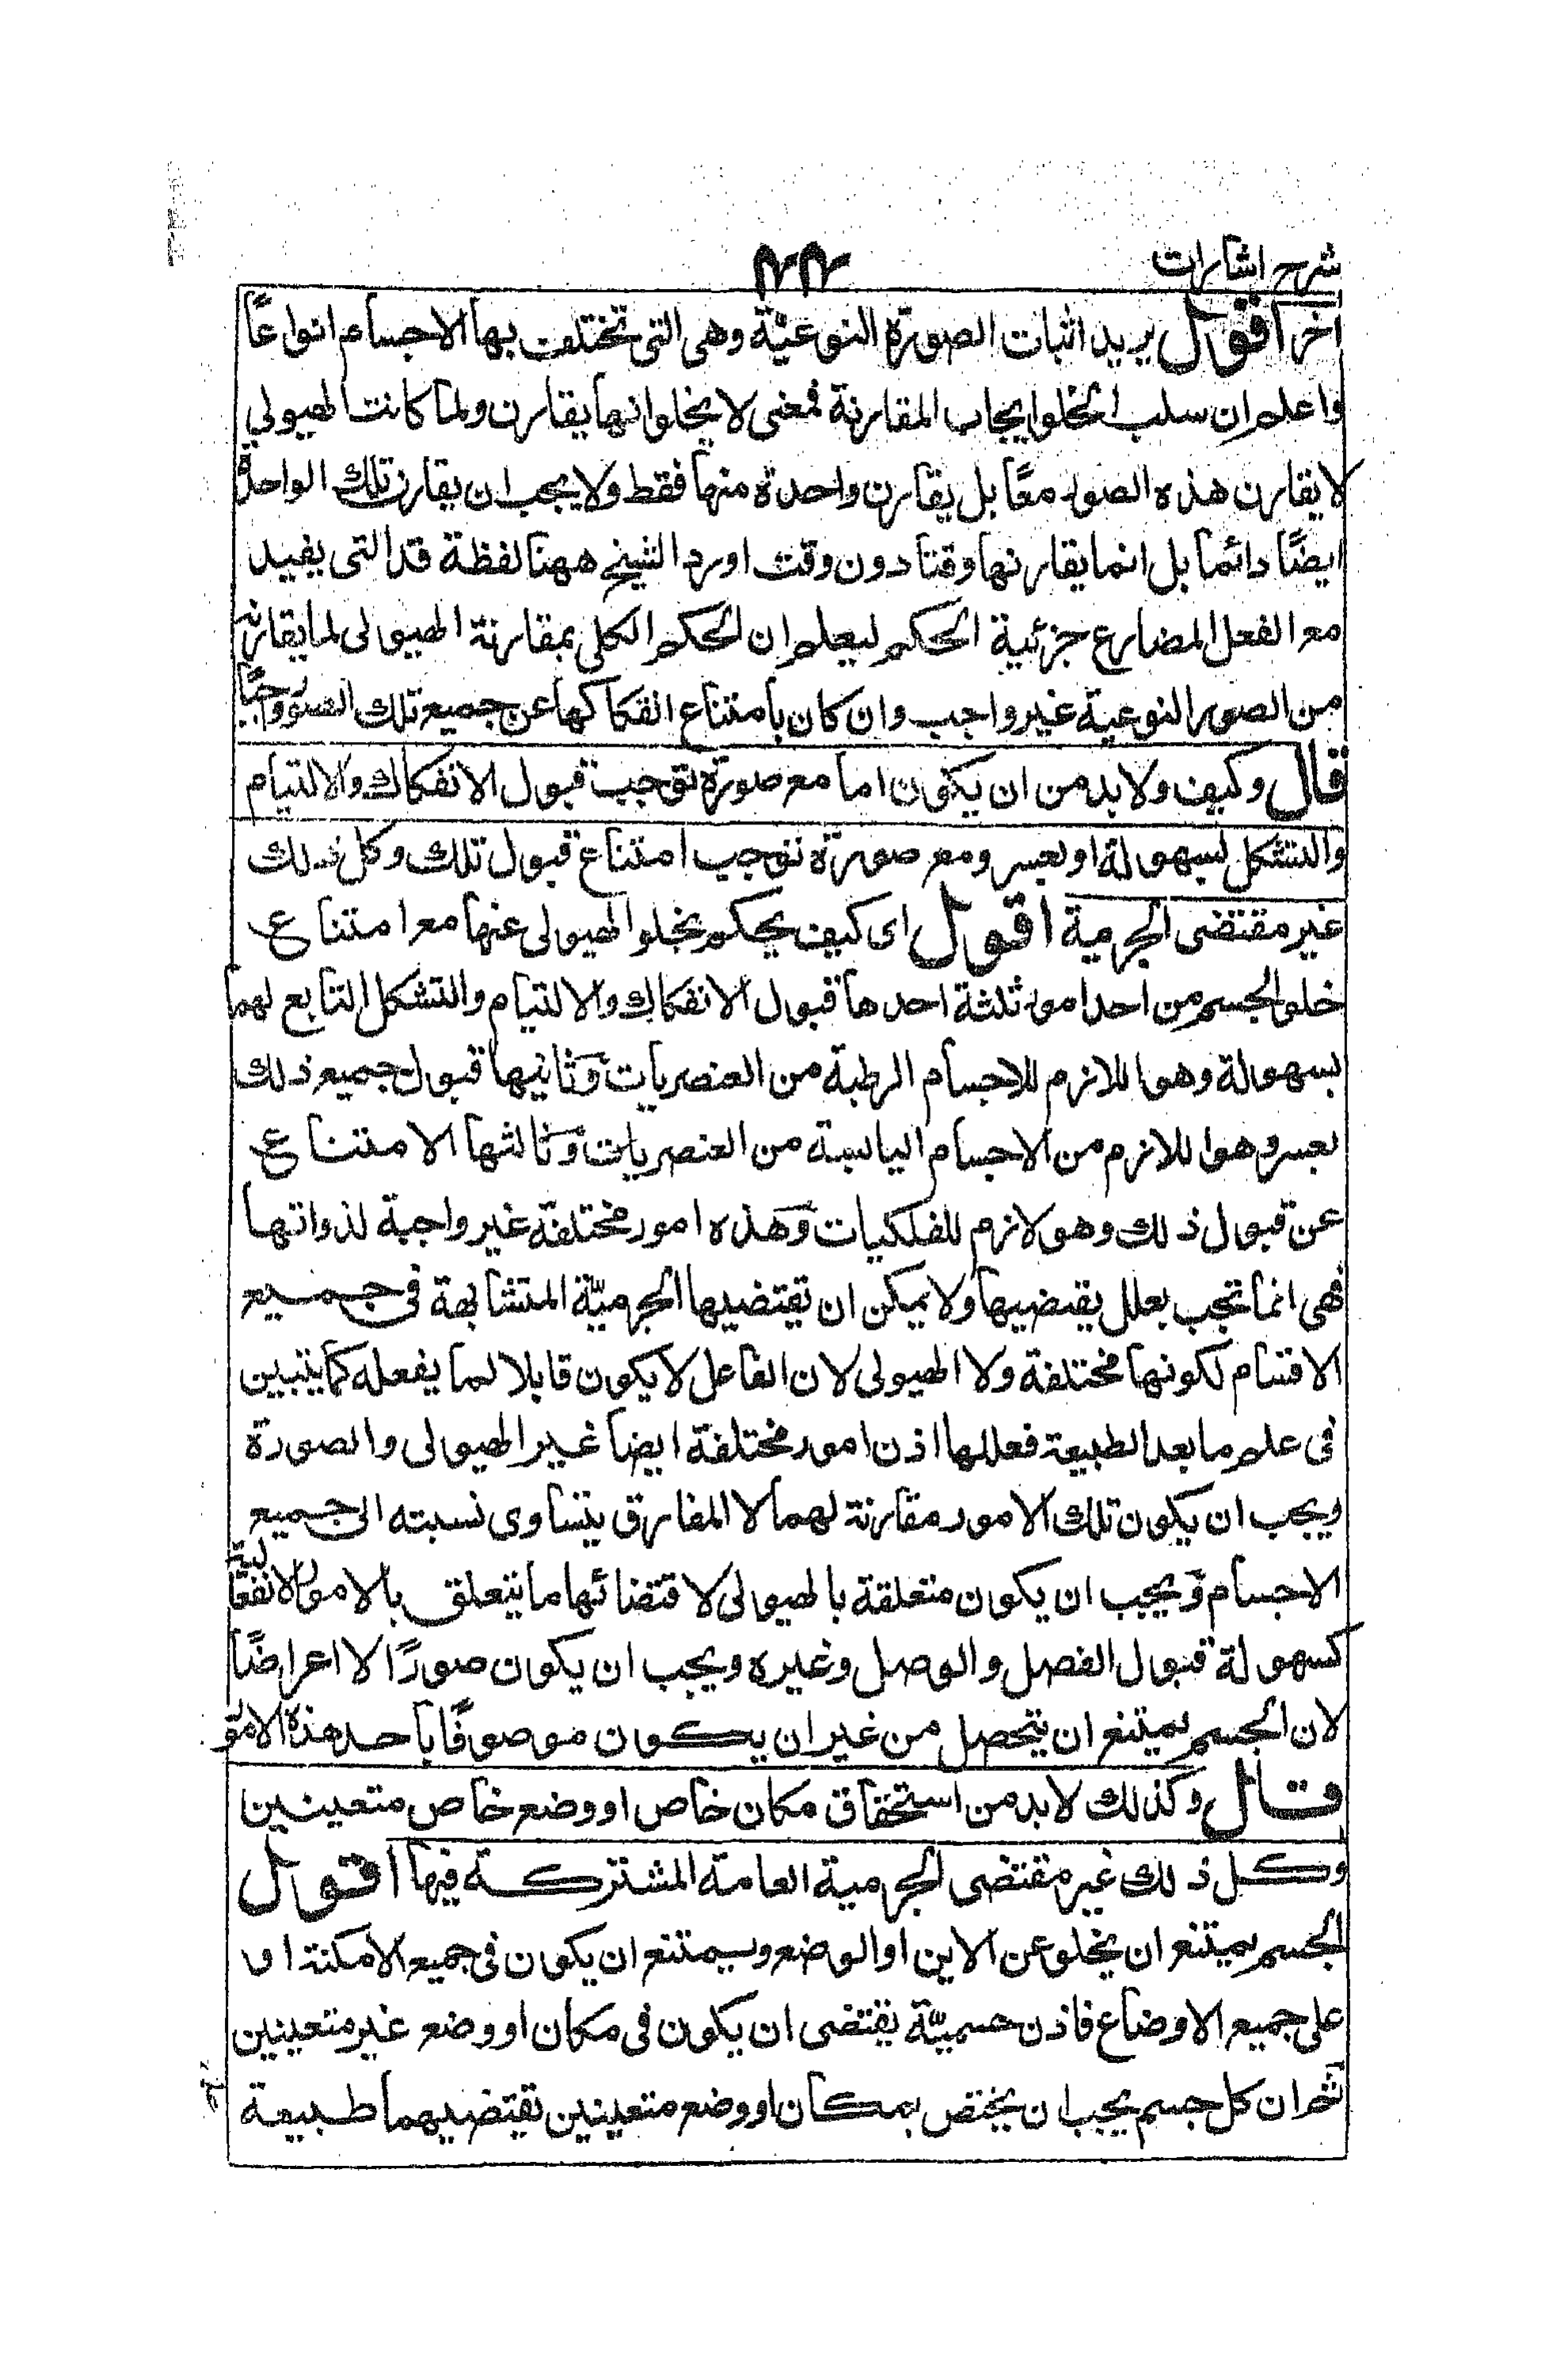 شرح اشارات
٢٢
اخر اقول يريد اثبات الصورة النوعية وهى التى تختلف بها الاجسام انواعاً
واعلم ان سلب الخلو ايجاب المقارنة فمعنى لا يخلو انها يقارن ولما كانت الهيولي
لا يقارن هذه الصور معاً بل يقارن واحدة منها فقط ولا يجب ان يقارن تلك الواحدة
ايضًا دائما بل انما يقارنها وقتا دون وقت اورد الشيخ ههنا لفظة قد التى يفيد
مع الفعل المضارع جزئية الحكم ليعلم ان الحكم الكلى بمقارنة الهيولى لما يقارنه
من الصور النوعية غير واجب وان كان بامتناع انفكاكها عن جميع تلك الصور واجبًا
قال وكيف ولا بد من ان يكون اما مع صورة توجب قبول الانفكاك والالتيام
والتشكل بسهولة او بعسر ومع صورة توجب امتناع قبول تلك وكل ذلك
غير مقتضى الجرمية اقول اى كيف يحكم بخلو الهيولى عنها مع امتناع
خلو الجسم من احد امور ثلثة احدها قبول الانفكاك والالتيام والتشكل التابع لهما
بسهولة وهو اللازم للاجسام الرطبة من العنصريات وثانيها قبول جميع ذلك
بعسر وهو اللازم من الاجسام اليابسة من العنصريات وثالثها الامتناع
عن قبول ذلك وهو لازم للفلكيات وهذه امور مختلفة غير واجبة لذواتها
فهى انما تجب بعلل يقتضيها ولا يمكن ان تقتضيها الجرميّة المتشابهة فى جميع
الاقسام لكونها مختلفة ولا الهيولى لان الفاعل لا يكون قابلا لما يفعله كما يتبين
فى علم ما بعد الطبيعة فعللها اذن امور مختلفة ايضا غير الهيولى والصورة
ويجب ان يكون تلك الامور مقارنة لهما لا المفارق يتساوى نسبته الى جميع
الاجسام ويجب ان يكون متعلقة بالهيولى لاقتضائها ما يتعلق بالامور الانفعالية
كسهولة قبول الفصل والوصل وغيره ويجب ان يكون صورًا لا اعراضًا
لان الجسم يمتنع ان يتحصل من غير ان يكون موصوفًا باحد هذه الامور
قال وكذلك لا بد من استحقاق مكان خاص او وضع خاص متعينين
وكل ذلك غير مقتضى الجرمية العامة المشتركة فيها اقول
الجسم يمتنع ان يخلو عن الاين او الوضع ويمتنع ان يكون فى جميع الامكنة او
على جميع الاوضاع فاذن جسميّة يقتضى ان يكون فى مكان او وضع غير متعينين
ثم ان كل جسم يجب ان يختص بمكان او وضع متعينين تقتضيهما طبيعة